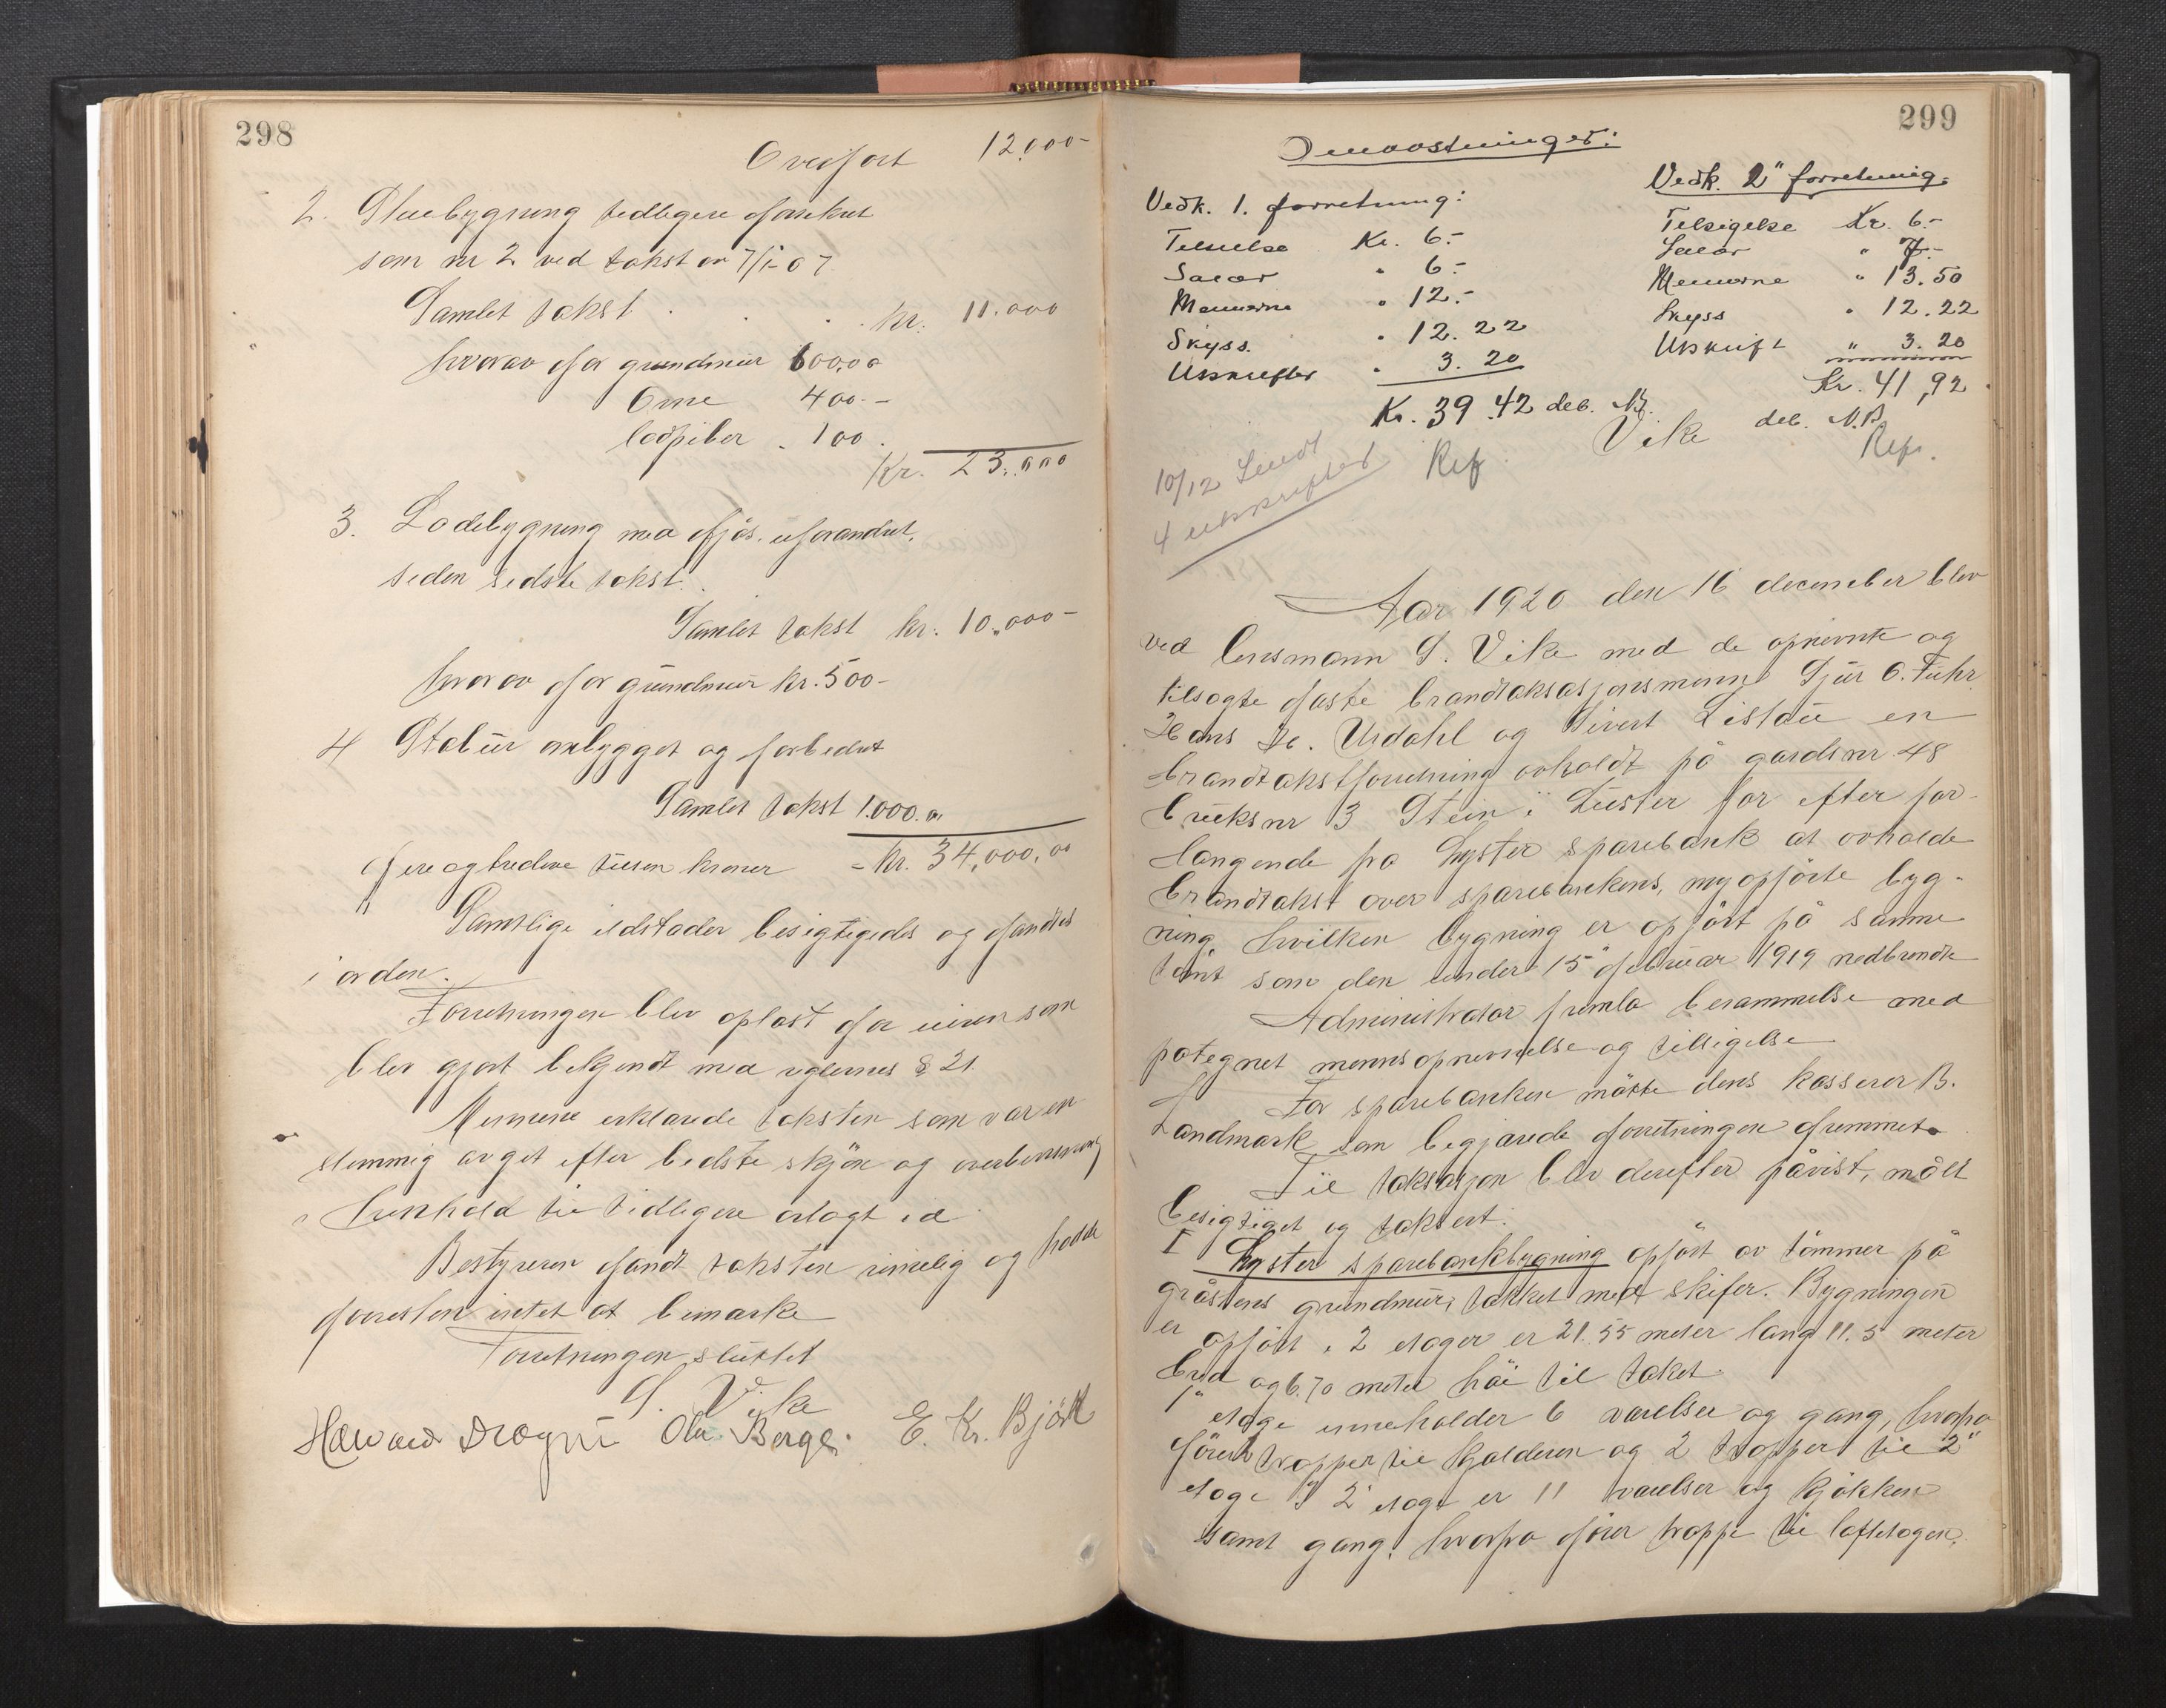 298
Overført 12,000-
2. Stuebygning tidligere forsikret
som nr 2 ved takst av 7/1-07
Samlet takst . . . kr. 11.000
hvorav for grundmur 600,00
Orne 400.-
lodpiber - 100.
Kr. 23.000
3. Lodebygning med fjøs, uforandret,
siden sidste takst.
Samlet takst kr. 10.000-
hvorav for grundmur kr. 500-
4 Stabur ombygget og forbedret
Samlet takst 1.000.00
Fire og tredeve tusen kroner = kr. 34,000,00
Samtlige ildstader besigtigedes og fandtes
i orden.
Forretningen blev oplæst for eieren som
blev gjort bekjendt med reglernes § 21
Mennene erklærede taksten som var en
stemmig avget efter bedste skjøn og overbevisning
i henhold til tidligere avlagt ed
Bestyreren fandt taksten rimelig og hadde
forresten intet at bemærke
Forretningen sluttet
S. Vike
Hauard Drægni Ola Berge. E. Kr. Bjørk
299
Omkostninger:
Vedk. 1. forretning:
Tilsielse Kr. 6.-
Salær " 6.-
Mennerne " 12.-
Skyss. " 12.22
Utskrifter " 3.20
Kr. 39.42 deb. N.B.
Ref.
Vedk. 2" forretning:
Tilsigelse Kr. 6.-
Salær " 7.-
Mennerne " 13.50
Skyss " 12.22
Utskrift " 3.20
Kr. 41,92
Vike deb. N.B.
Ref.
10/12 Sendt
4 utskrifter
Aar 1920 den 16 december blev
ved lensmann S. Vike med de opnevnte og
tilsagte faste brandtaksasjonsmenn Sjur O. Fuhr
Hans H. Urdahl og Sivert Lislau en
brandtakstforretning avholdt på gardsnr 48
bruksnr 3 Stein i Luster for efter for-
langende fra Lyster sparebank at avholde
brandtakst over sparebankens, nyopførte byg-
ning, hvilken bygning er opført på samme
tomt som den under 15 februar 1919 nedbrendte
Administrator fremla berammelse med
pategnet mennsopnevnelse og tilsigelse
For sparebanken møtte dens kasserer B.
Landmark som begjærede forretningen fremmet.
Til taksasjon blev derefter påvist, målt
besigtiget og taksert:
I Lyster sparebankbygning opført av tømmer på
gråstens grundmur, takket med skifer. Bygningen
er opført i 2 etager er 21.55 meter lang 11.5 meter
bred og 6.70 meter høi til taket.
1" etage inneholder 6 værelser og gang, hvorfra
fører trapper til kjælderen og 2 trapper til 2"
etage I 2' etage er 11 værelser og kjøkken
samt gang, hvorfra fører trappe til loftetagen,